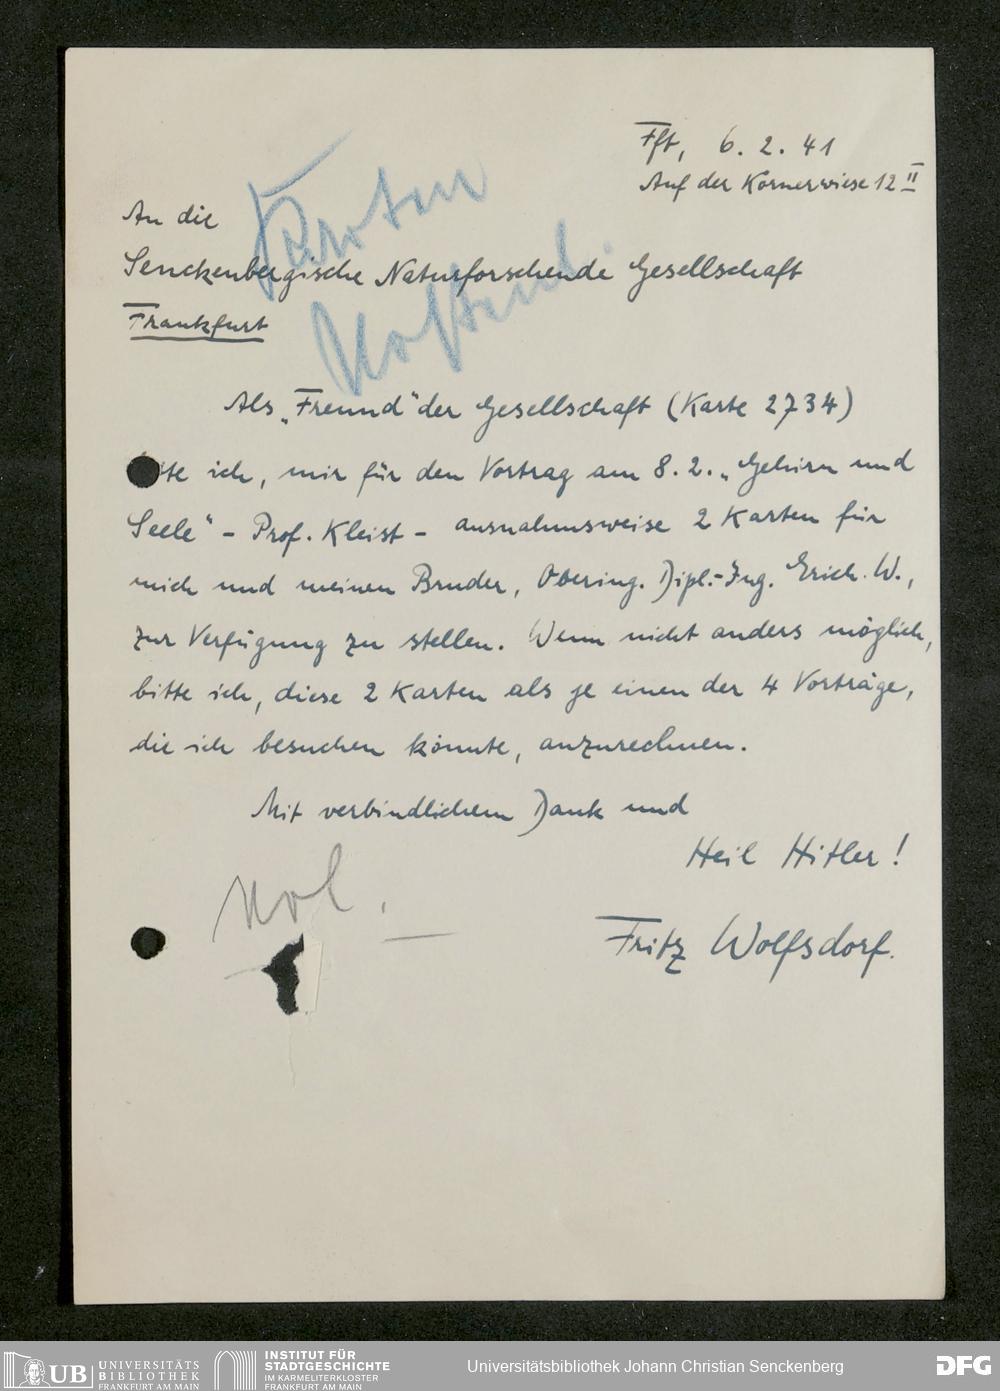 Fft, 6. 2. 41
Auf der Körnerwiese 12 II
An die
Senckenbergische Naturforschende Gesellschaft
Frankfurt
Karten
Als „Freund“ der Gesellschaft (Karte 2734)
tte ich, mir für den Vortrag am 8. 2. „Gehirn und
Seele“ – Prof. Kleist – ausnahmsweise 2 Karten für
mich und meinen Bruder, Obering. Dipl.-Ing. Erich W.,
zur Verfügung zu stellen. Wenn nicht anders möglich,
bitte ich, diese 2 Karten als je einen der 4 Vorträge,
die ich besuchen könnte, anzurechnen.
Mit verbindlichem Dank und
Heil Hitler!
Fritz Wolfsdorf.
UB UNIVERSITÄTS
BIBLIOTHEK
FRANKFURT AM MAIN
INSTITUT FÜR
STADTGESCHICHTE
IM KARMELITERKLOSTER
FRANKFURT AM MAIN
Universitätsbibliothek Johann Christian Senckenberg
DFG